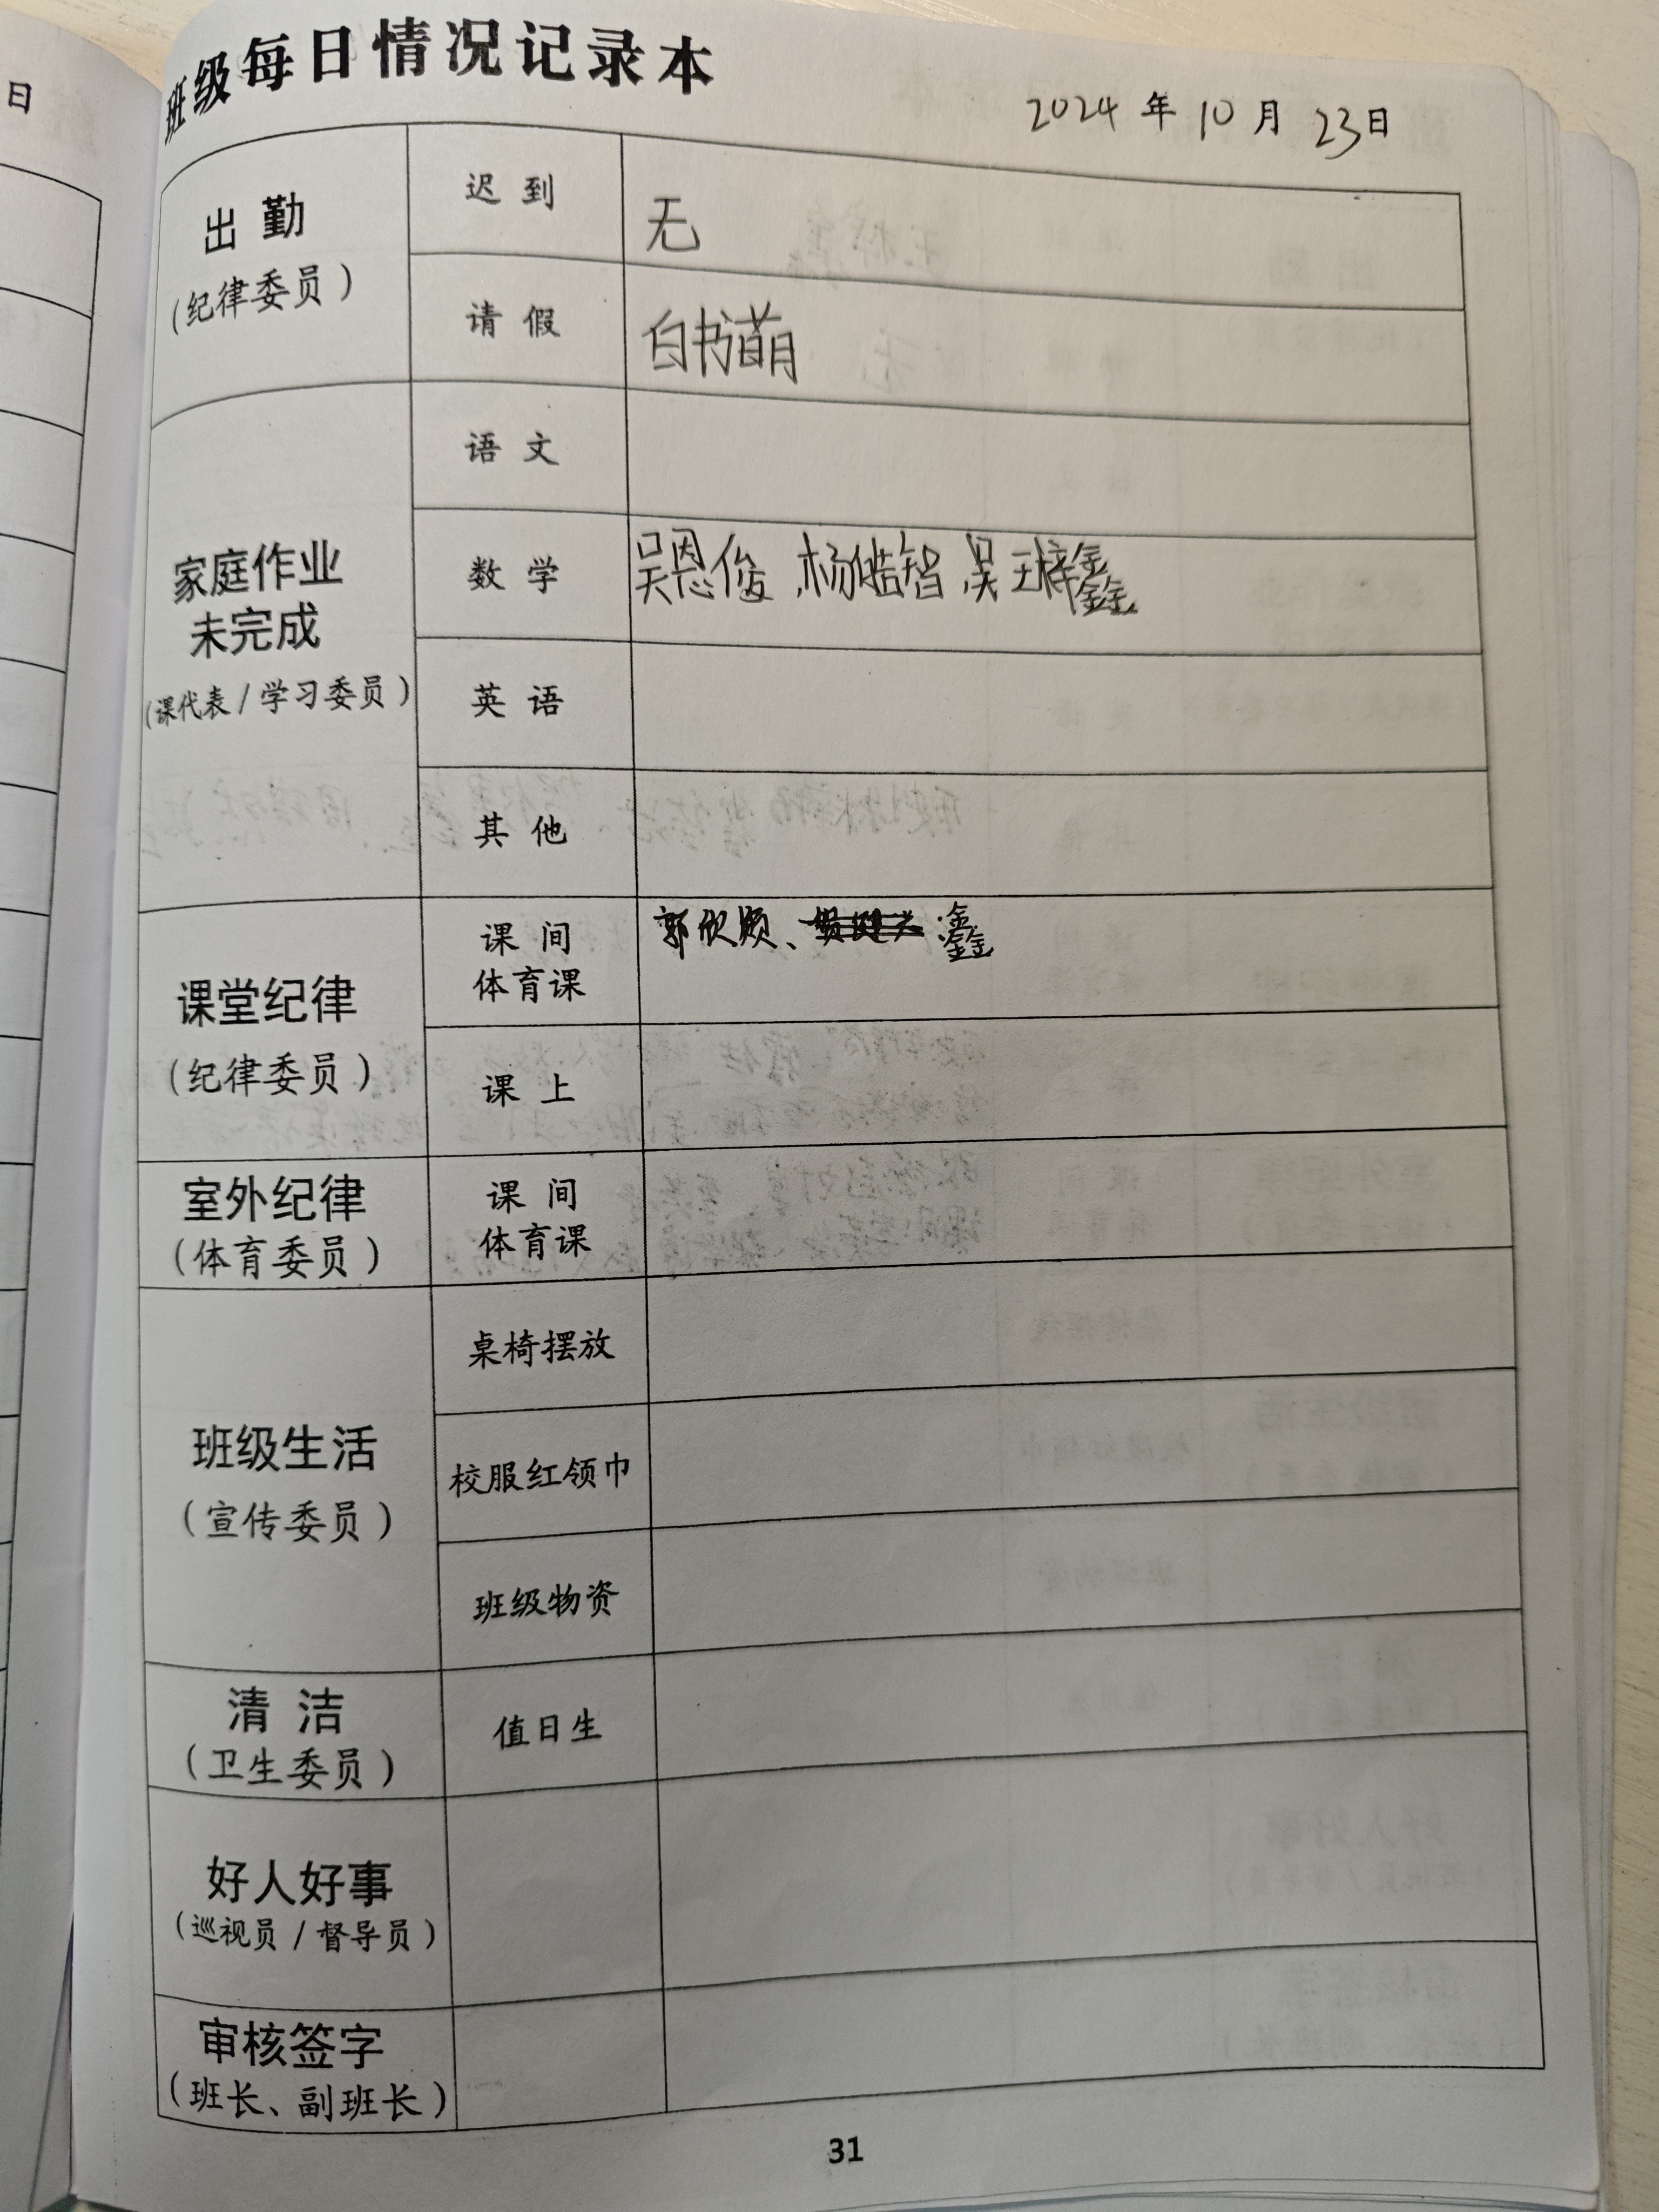 日
班级每日情况记录本
2024 年 10 月 23日
出 勤
(纪律委员)
迟 到
无
请 假
白书萌
家庭作业
未完成
(课代表/学习委员)
语 文
数 学
吴恩俊,杨皓智,吴 王梓鑫
英 语
其 他
课堂纪律
(纪律委员)
课 间
体育课
郭欣颍、鑫
课 上
室外纪律
(体育委员)
课 间
体育课
班级生活
(宣传委员)
桌椅摆放
校服红领巾
班级物资
清 洁
(卫生委员)
值日生
好人好事
(巡视员/督导员)
审核签字
(班长、副班长)
31